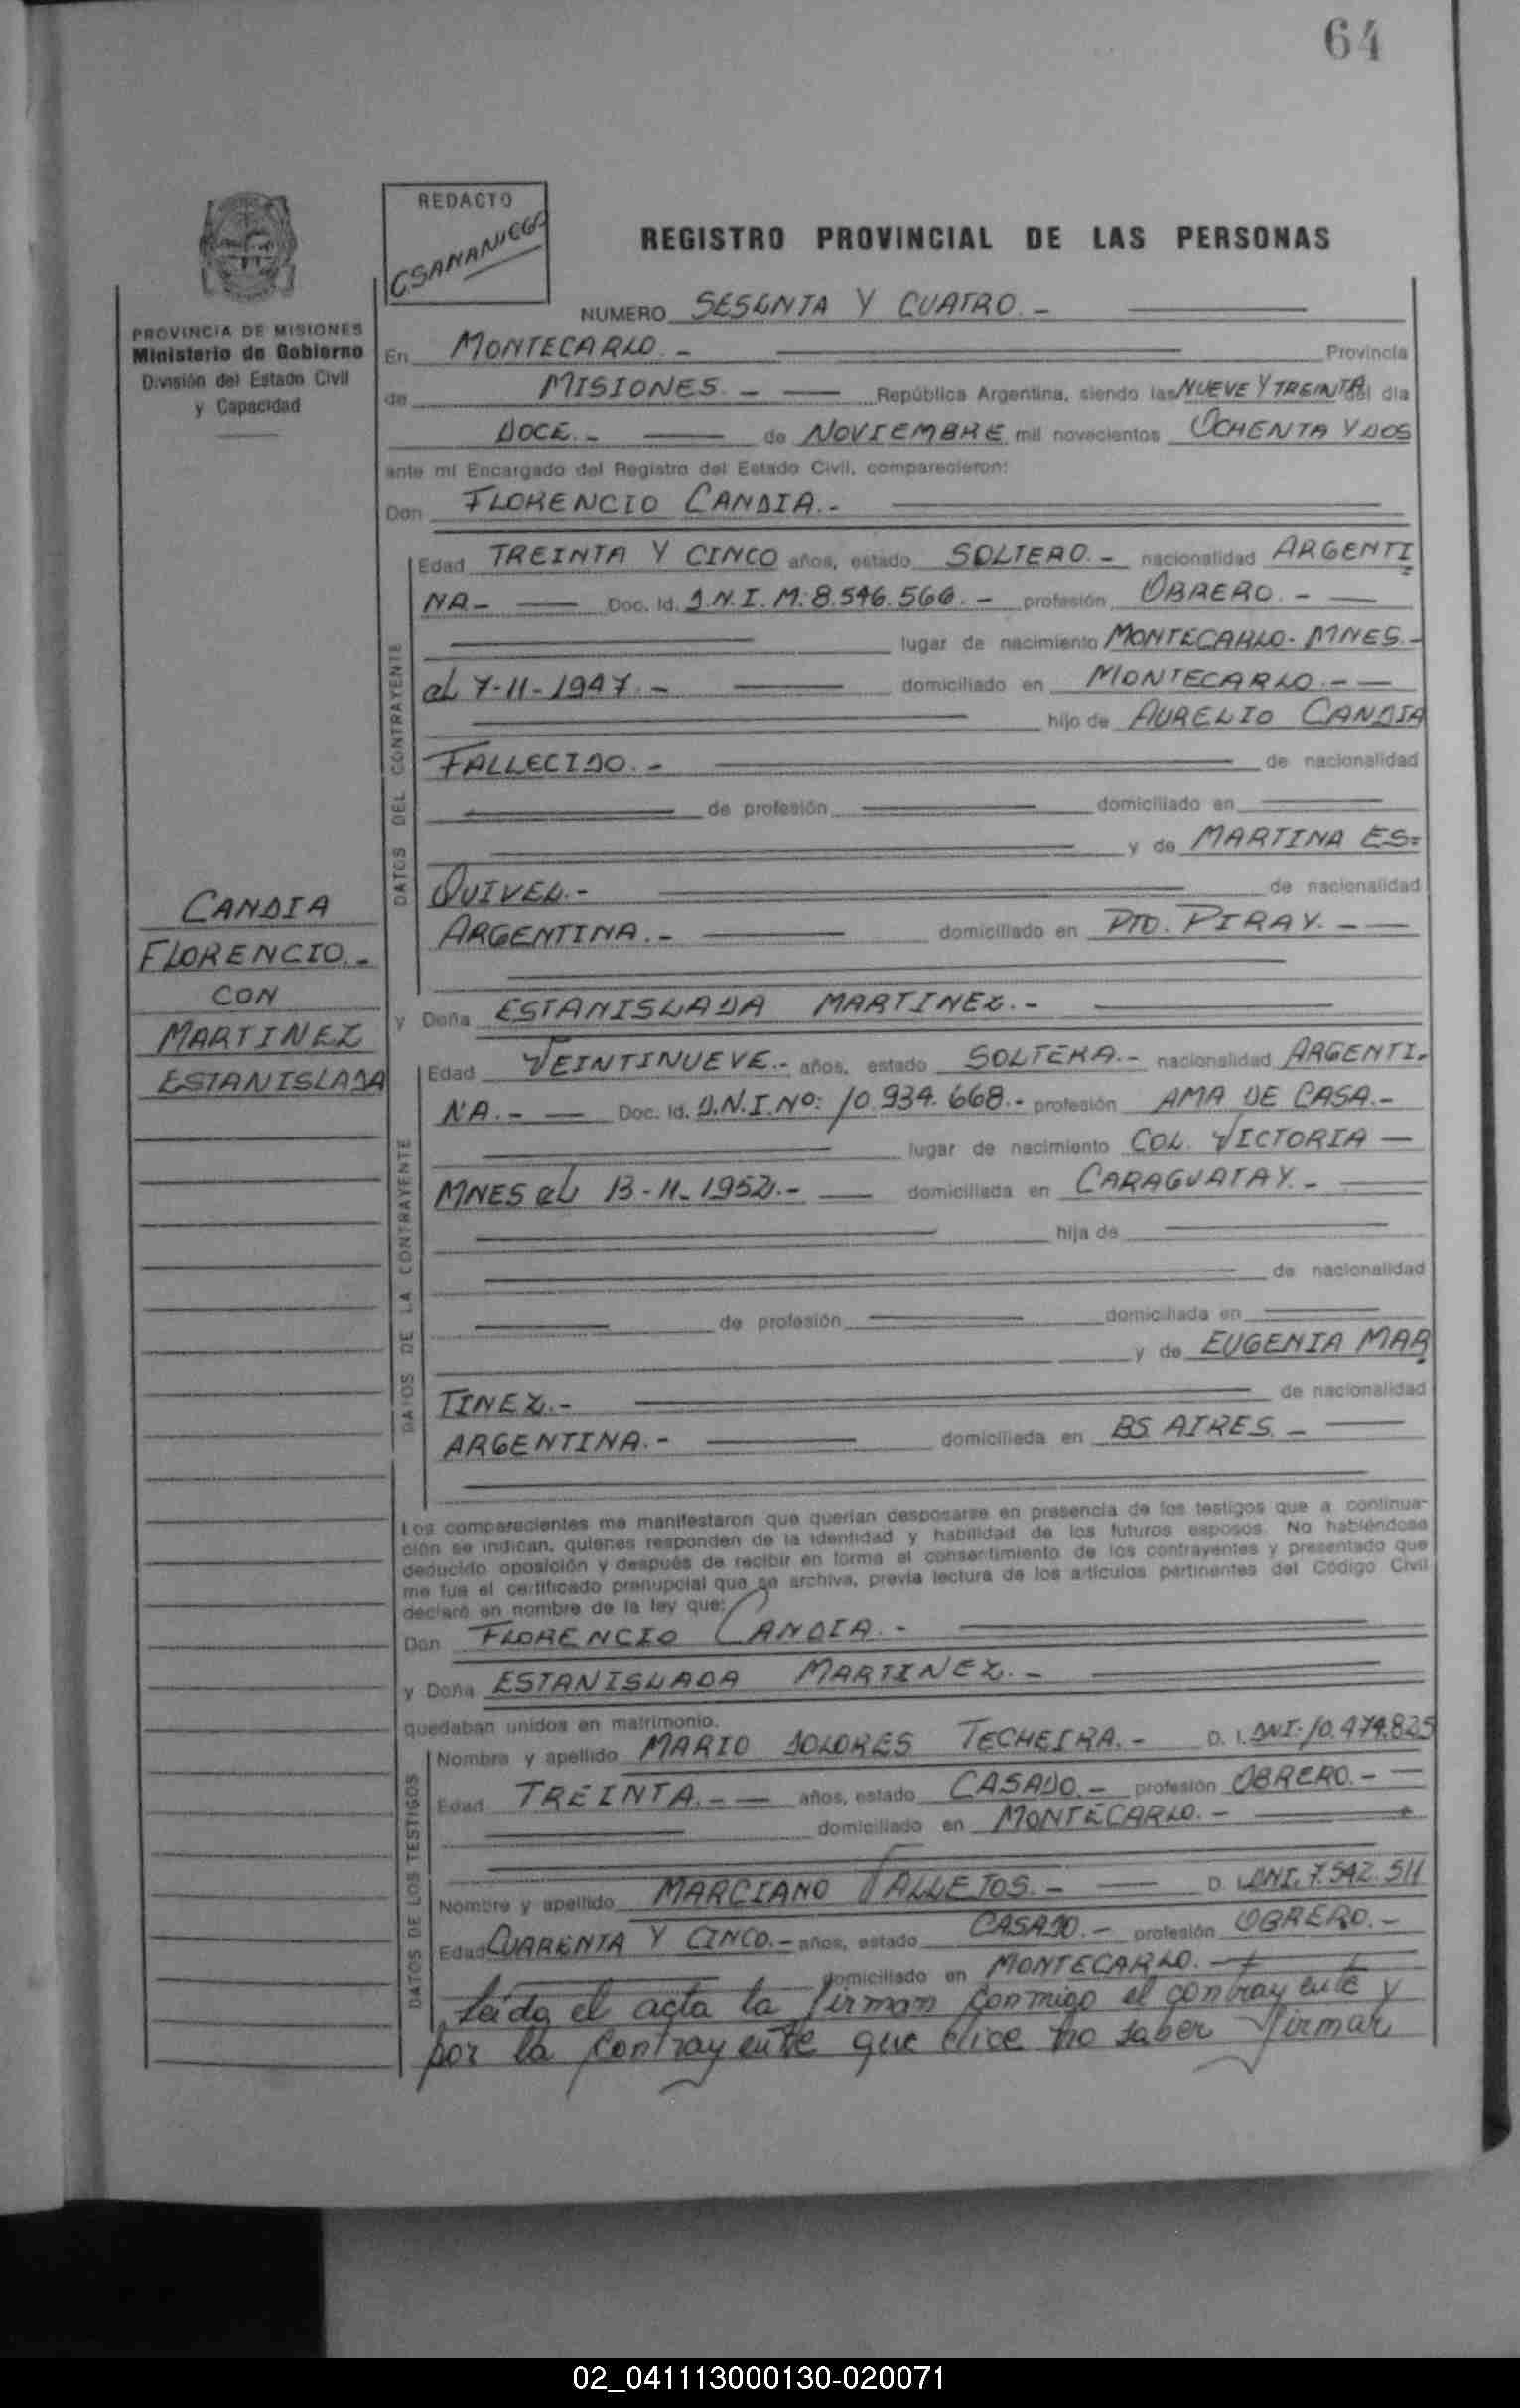 64
REDACTO
REGISTRO PROVINCIAL DE LAS PERSONAS
NUMERO SESENTA Y CUATRO.-
PROVINCIA DE MISIONES
Ministerio de Gobierno
División del Estado Civil
y Capacidad
En MONTECARLO.- Provincia
de MISIONES.- República Argentina, siendo las NUEVE Y TREINTA del día
DOCE.- de NOVIEMBRE mil novecientos OCHENTA Y DOS
ante mi Encargado del Registro del Estado Civil, comparecieron:
Don FLORENCIO CANDIA.-
DATOS DEL CONTRAYENTE
Edad TREINTA Y CINCO años, estado SOLTERO.- nacionalidad ARGENTI
NA- Doc. Id. D.N.I. M: 8.546.566.- profesión OBRERO.-
lugar de nacimiento MONTECARLO- MNES.-
el 7-11-1947.- domiciliado en MONTECARLO.-
hijo de AURELIO CANDIA
FALLECIDO.- de nacionalidad
de profesión domiciliado en
y de MARTINA ES=
QUIVEL.- de nacionalidad
ARGENTINA.- domiciliado en PTO. PIRAY.-
CANDIA
FLORENCIO.-
CON
MARTINEZ
ESTANISLADA
y Doña ESTANISLADA MARTINEZ.-
DATOS DE LA CONTRAYENTE
Edad VEINTINUEVE.- años, estado SOLTERA.- nacionalidad ARGENTI-
NA.- Doc. Id. D.N.I. Nº: 10.934.668.- profesión AMA DE CASA.-
lugar de nacimiento COL. VICTORIA
MNES el 13-11-1952.- domiciliada en CARAGUATAY.-
hija de
de nacionalidad
de profesión domiciliada en
y de EUGENIA MAR
TINEZ.- de nacionalidad
ARGENTINA.- domiciliada en BS AIRES.-
Los comparecientes me manifestaron que querían desposarse en presencia de los testigos que a continua-
ción se indican, quienes responden de la identidad y habilidad de los futuros esposos. No habiéndose
deducido oposición y después de recibir en forma el consentimiento de los contrayentes y presentado que
me fue el certificado prenupcial que se archiva, previa lectura de los artículos pertinentes del Código Civil
declaro en nombre de la ley que:
Don FLORENCIO CANDIA.-
y Doña ESTANISLADA MARTINEZ.-
quedaban unidos en matrimonio.
DATOS DE LOS TESTIGOS
Nombre y apellido MARIO DOLORES TECHEIRA.- D. I. DNI- 10.474.825
Edad TREINTA.- años, estado CASADO.- profesión OBRERO.-
domiciliado en MONTECARLO.-
Nombre y apellido MARCIANO VALLEJOS.- D. I. DNI. 7.542.511
Edad CUARENTA Y CINCO.- años, estado CASADO.- profesión OBRERO.-
domiciliado en MONTECARLO.-
Leida el acta la firman conmigo el contrayente y
por la contrayente que dice no saber firmar
02_041113000130-020071